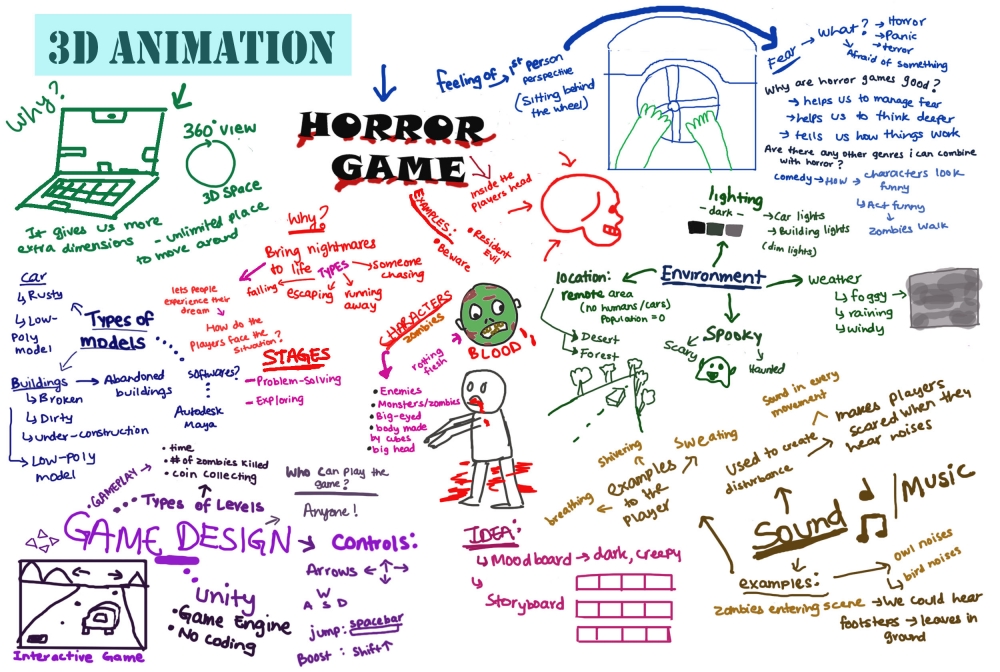 3D ANIMATION
Why?
360° view
3D space
It gives us more
extra dimensions
- unlimited place
to move around
HORROR
GAME
feeling of → 1st person
perspective
(Sitting behind
the wheel)
Fear → What? → Horror
→ Panic
→ terror
Afraid of something
Why are horror games good?
→ helps us to manage fear
→ helps us to think deeper
→ tells us how things work
Are there any other genres i can combine
with horror?
comedy → How → characters look
funny
↳ Act funny
↓
zombies walk
inside the
players head
EXAMPLES:
• Resident
Evil
• Beware
Why?
Bring nightmares
to life
TYPES
→ someone
chasing
falling
escaping
running
away
lets people
experience their
dream
How do the
Players face the
situation?
STAGES
- Problem-Solving
- Exploring
CHARACTERS
zombies
BLOOD
rotting
flesh
• Enemies
• Monsters/zombies
• Big-eyed
• body made
by cubes
• big head
lighting
- dark -
→ Car lights
→ Building lights
(dim lights)
Environment
location:
remote area
(no humans/cars)
Population = 0
→ Desert
→ Forest
weather
↳ foggy
↳ raining
↳ windy
Spooky
Scary
Haunted
Types of
models
car
↳ Rusty
↳ Low-
Poly
model
Buildings → Abandoned
buildings
↳ Broken
↳ Dirty
↳ under-construction
↳ Low-poly
model
softwares?
Autodesk
Maya
GAME DESIGN
Types of Levels
• GAMEPLAY
• time
• # of zombies killed
• coin collecting
Who can play the
game?
Anyone!
Controls:
Arrows ← ↑ ↓ →
W
A S D
jump: spacebar
Boost : Shift ↑
unity
• Game Engine
• No coding
Interactive Game
IDEA:
↳ Moodboard → dark, creepy
↳
Storyboard
Sound / Music
used to create
disturbance
makes players
scared when they
hear noises
Sound in every
movement
examples
to the
player
Sweating
shivering
breathing
examples:
owl noises
bird noises
zombies entering scene → We could hear
footsteps → leaves in
ground